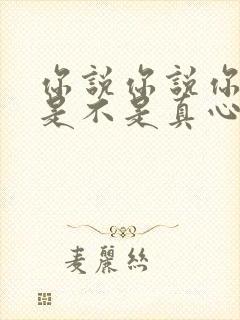 你說你說你
是不是真心
麦麗絲